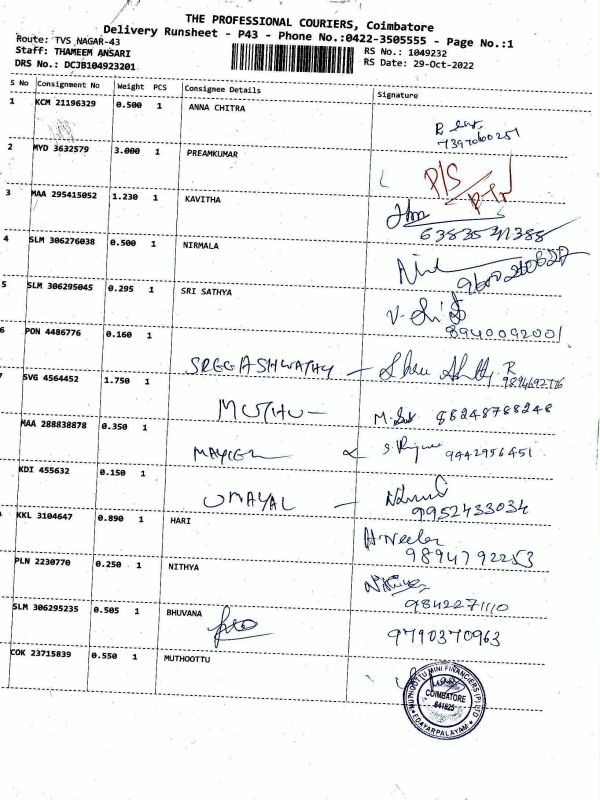 THE PROFESSIONAL COURIERS, Coimbatore
Delivery Runsheet - P43 - Phone No.:0422-3505555 - Page No.:1
Route: TVS NAGAR-43
Staff: THAMEEM ANSARI
DRS No.: DCJB104923201
RS No.: 1049232
RS Date: 29-Oct-2022
S No Consignment No Weight PCS Consignee Details Signature
1 KCM 21196329 0.500 1 ANNA CHITRA
7397060251
2 MYD 3632579 3.000 1 PREAMKUMAR
P/S
3 MAA 295415052 1.230 1 KAVITHA
4 SLM 306276038 0.500 1 NIRMALA
5 SLM 306295045 0.295 1 SRI SATHYA
8940092001
6 PON 4486776 0.160 1
7 SVG 4564452 1.750 1 MUTHU -
88248788248
MAA 288838878 0.350 1
9442956451
KDI 455632 0.150 1 UMAYAL -
9952433034
KKL 3104647 0.890 1 HARI
9894792253
PLN 2230770 0.250 1 NITHYA
9842271110
SLM 306295235 0.505 1 BHUVANA
9790370963
COK 23715839 0.550 1 MUTHOOTTU
MUTHOOTTU MINI FINANCIERS (P) LTD
COIMBATORE
641025
EDAYARPALAYAM